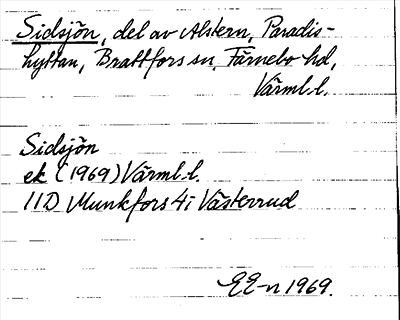 Sidsjön, del av Alstern, Paradis-
hyttan, Brattfors sn, Färnebo hd,
Värml.l.
Sidsjön
ek (1969) Värml.l.
11D Munkfors 4i Västerrud
EE-n 1969.